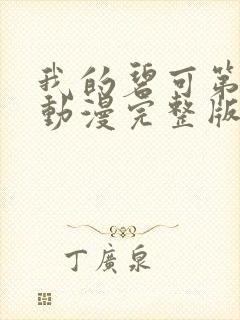 我的碧可第
動漫完整版
丁廣泉